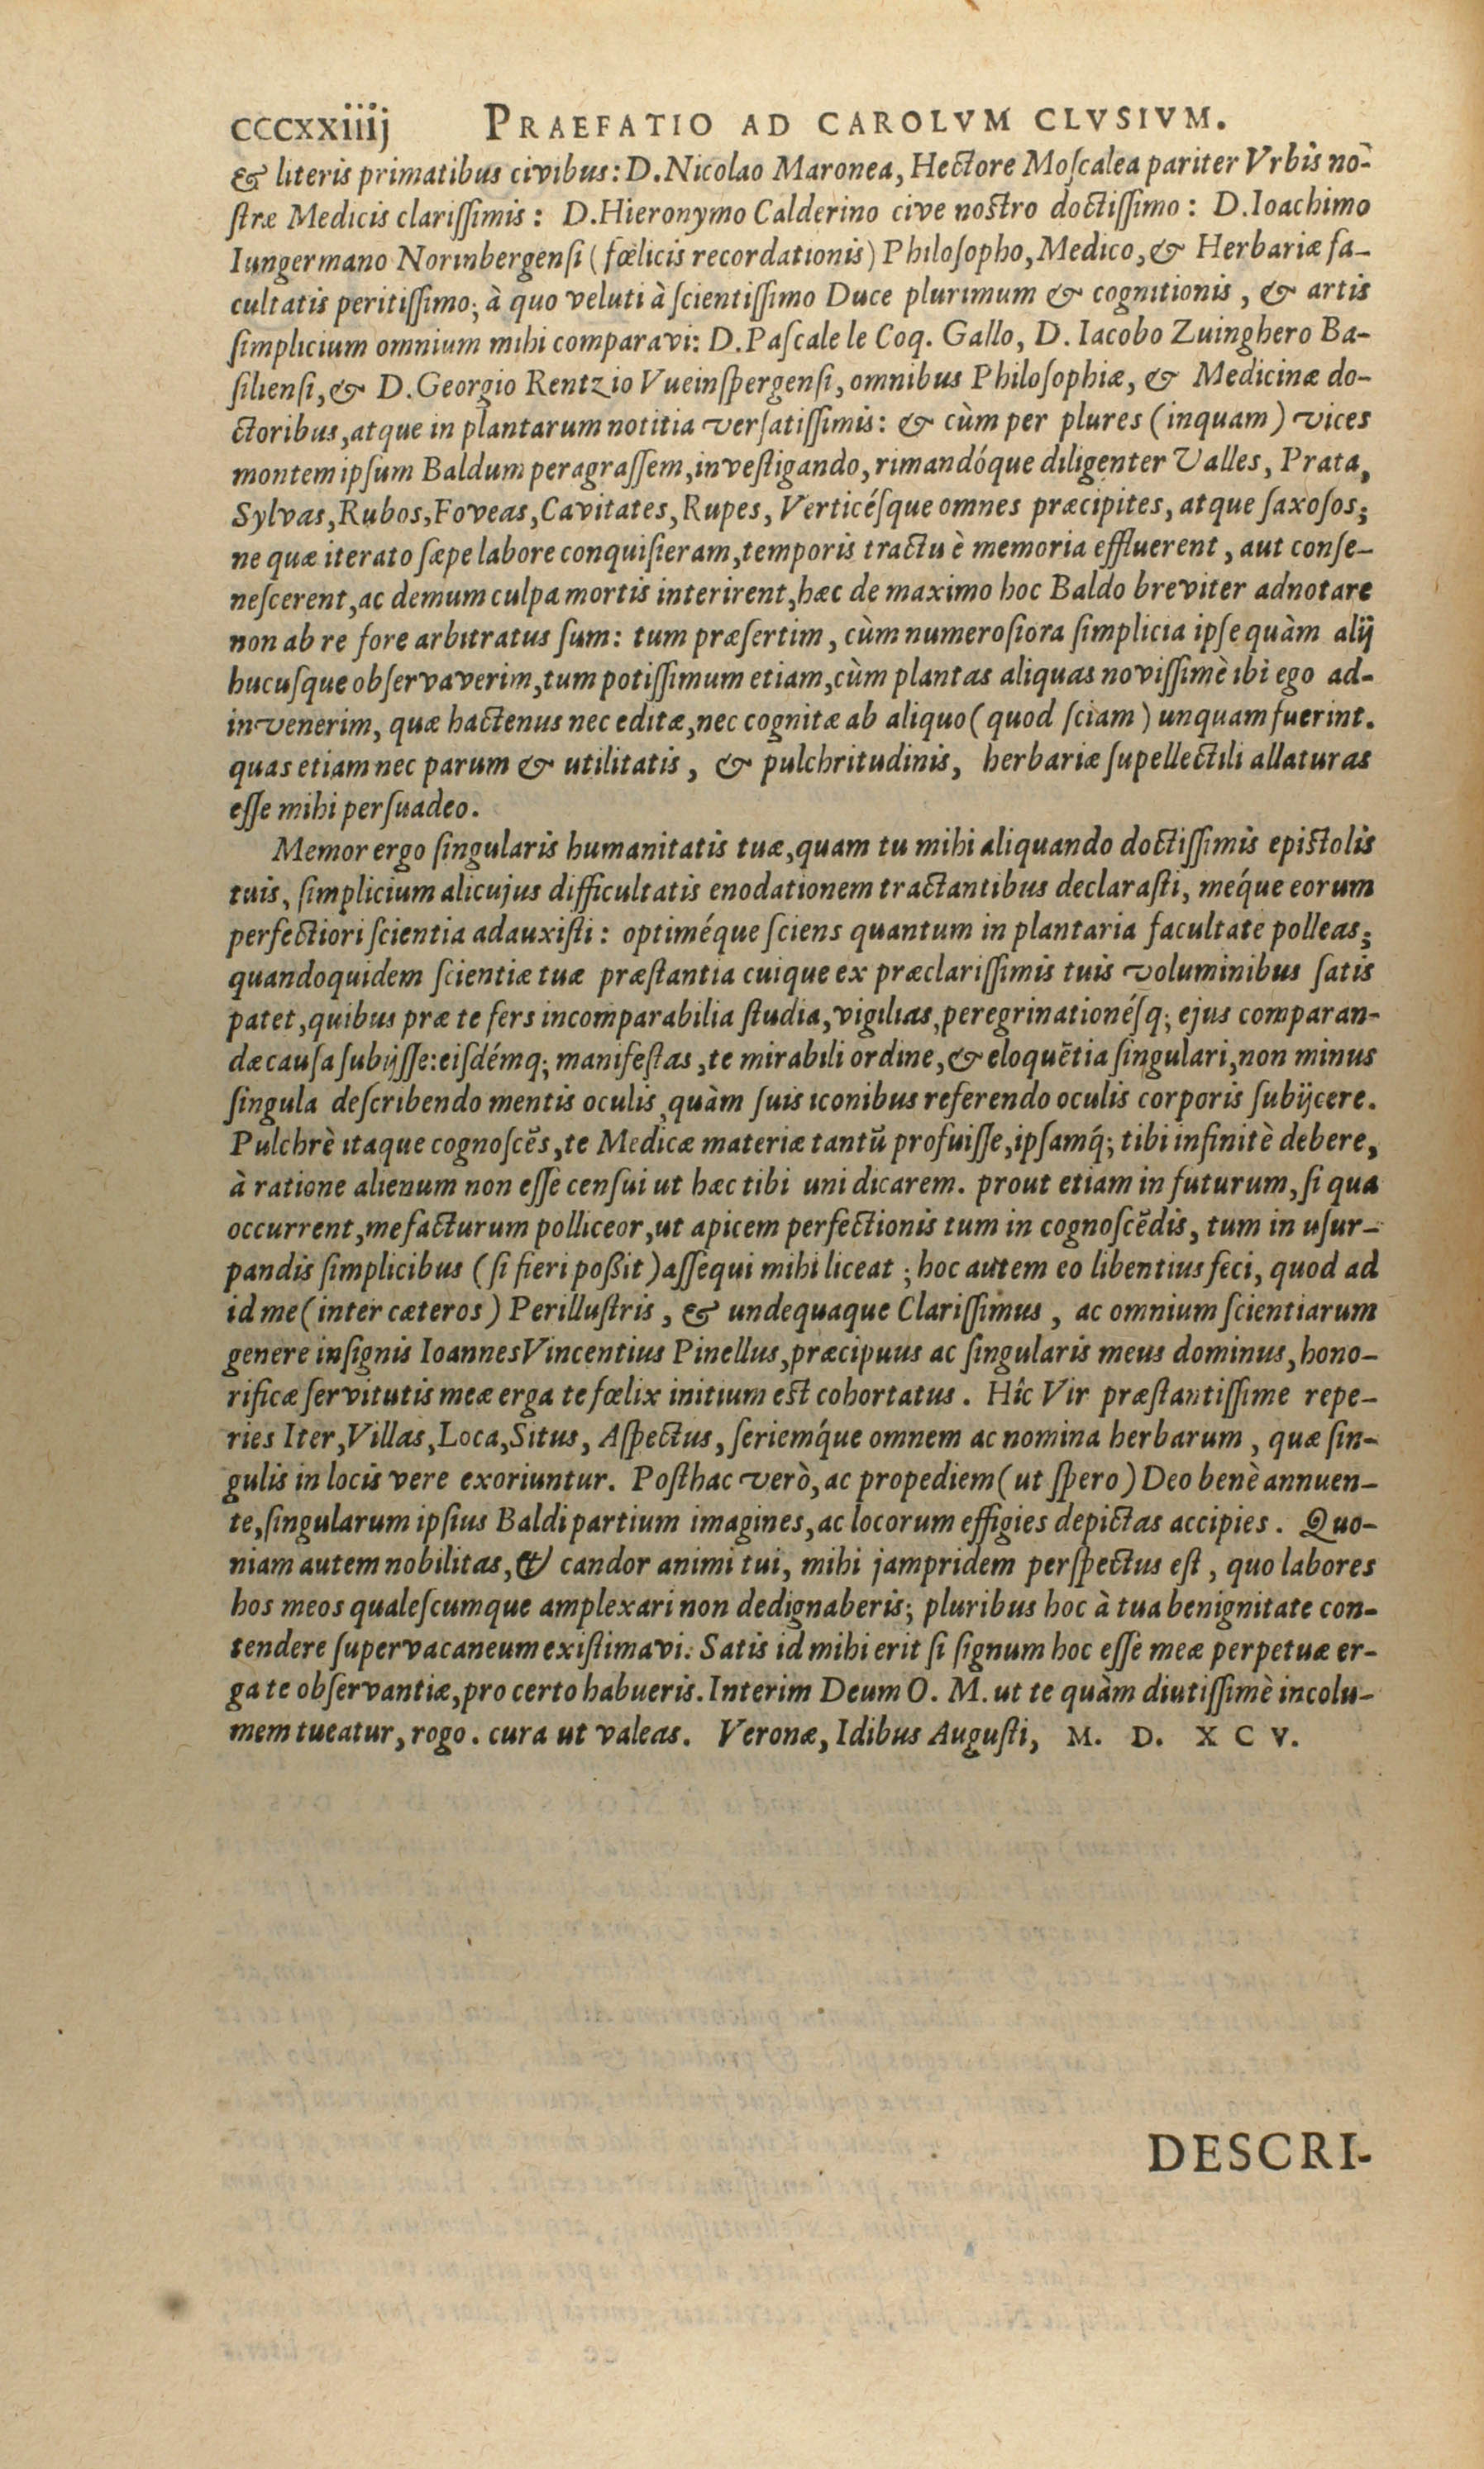 cccxxiiij PRAEFATIO AD CAROLVM CLVSIVM.
& literis primatibus civibus: D. Nicolao Maronea, Hectore Moſcalea pariter Vrbis no-
ſtræ Medicis clariſſimis: D. Hieronymo Calderino cive noſtro doctiſſimo: D. Ioachimo
Iungermano Norinbergenſi (fœlicis recordationis) Philoſopho, Medico, & Herbariæ fa-
cultatis peritiſſimo; à quo veluti à ſcientiſſimo Duce plurimum & cognitionis, & artis
ſimplicium omnium mihi comparavi: D. Paſcale le Coq. Gallo, D. Iacobo Zuinghero Ba-
ſilienſi, & D. Georgio Rentzio Vueinſpergenſi, omnibus Philoſophiæ, & Medicinæ do-
ctoribus, atque in plantarum notitia verſatiſſimis: & cùm per plures (inquam) vices
montem ipſum Baldum peragraſſem, inveſtigando, rimandóque diligenter Valles, Prata,
Sylvas, Rubos, Foveas, Cavitates, Rupes, Verticéſque omnes præcipites, atque ſaxoſos;
ne quæ iterato ſæpe labore conquiſieram, temporis tractu è memoria effluerent, aut conſe-
neſcerent, ac demum culpa mortis interirent, hæc de maximo hoc Baldo breviter adnotare
non ab re fore arbitratus ſum: tum præſertim, cùm numeroſiora ſimplicia ipſe quàm alij
hucuſque obſervaverim, tum potiſſimum etiam, cùm plantas aliquas noviſſimè ibi ego ad-
invenerim, quæ hactenus nec editæ, nec cognitæ ab aliquo (quod ſciam) unquam fuerint.
quas etiam nec parum & utilitatis, & pulchritudinis, herbariæ ſupellectili allaturas
eſſe mihi perſuadeo.
Memor ergo ſingularis humanitatis tuæ, quam tu mihi aliquando doctiſſimis epiſtolis
tuis, ſimplicium alicujus difficultatis enodationem tractantibus declaraſti, meque eorum
perfectiori ſcientia adauxiſti: optiméque ſciens quantum in plantaria facultate polleas;
quandoquidem ſcientiæ tuæ præſtantia cuique ex præclariſſimis tuis voluminibus ſatis
patet, quibus præ te fers incomparabilia ſtudia, vigilias, peregrinationéſq; ejus comparan-
dæ cauſa ſubijſſe: eiſdémq; manifeſtas, te mirabili ordine, & eloquẽtia ſingulari, non minus
ſingula deſcribendo mentis oculis, quàm ſuis iconibus referendo oculis corporis ſubijcere.
Pulchrè itaque cognoſcẽs, te Medicæ materiæ tantũ profuiſſe, ipſamq́; tibi infinitè debere,
à ratione alienum non eſſe cenſui ut hæc tibi uni dicarem. prout etiam in futurum, ſi qua
occurrent, me facturum polliceor, ut apicem perfectionis tum in cognoſcẽdis, tum in uſur-
pandis ſimplicibus (ſi fieri poßit) aſſequi mihi liceat; hoc autem eo libentius feci, quod ad
id me (inter cæteros) Perilluſtris, & undequaque Clariſſimus, ac omnium ſcientiarum
genere inſignis Ioannes Vincentius Pinellus, præcipuus ac ſingularis meus dominus, hono-
rificæ ſervitutis meæ erga te fœlix initium eſt cohortatus. Hîc Vir præſtantiſſime repe-
ries Iter, Villas, Loca, Situs, Aſpectus, ſeriemq́ue omnem ac nomina herbarum, quæ ſin-
gulis in locis vere exoriuntur. Poſthac verò, ac propediem (ut ſpero) Deo benè annuen-
te, ſingularum ipſius Baldi partium imagines, ac locorum effigies depictas accipies. Quo-
niam autem nobilitas, & candor animi tui, mihi jampridem perſpectus eſt, quo labores
hos meos qualeſcumque amplexari non dedignaberis; pluribus hoc à tua benignitate con-
tendere ſupervacaneum exiſtimavi. Satis id mihi erit ſi ſignum hoc eſſe meæ perpetuæ er-
ga te obſervantiæ, pro certo habueris. Interim Deum O. M. ut te quàm diutiſſimè incolu-
mem tueatur, rogo. cura ut valeas. Veronæ, Idibus Auguſti, M. D. XCV.
DESCRI-